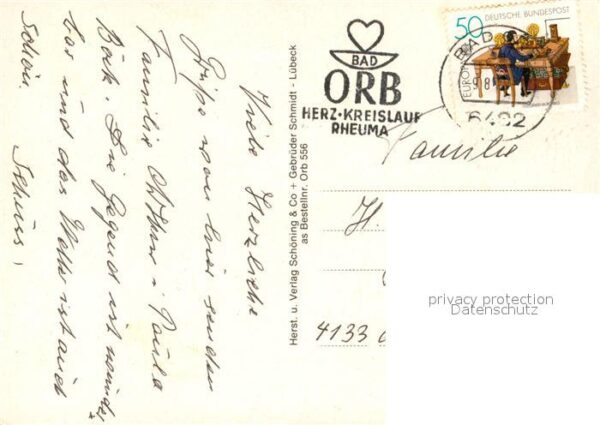 Viele Herzliche
Grüße von hier senden
Familie
Böck. Die Gegend ist wunder-
bar und das Wetter ist auch
schön.
Tschüss!
Herst. u. Verlag Schöning & Co + Gebrüder Schmidt - Lübeck
as Bestellnr. Orb 556
BAD
ORB
HERZ-KREISLAUF
RHEUMA
50 DEUTSCHE BUNDESPOST
EUROPA
BAD
6482
Familie
H.
4133
privacy protection
Datenschutz